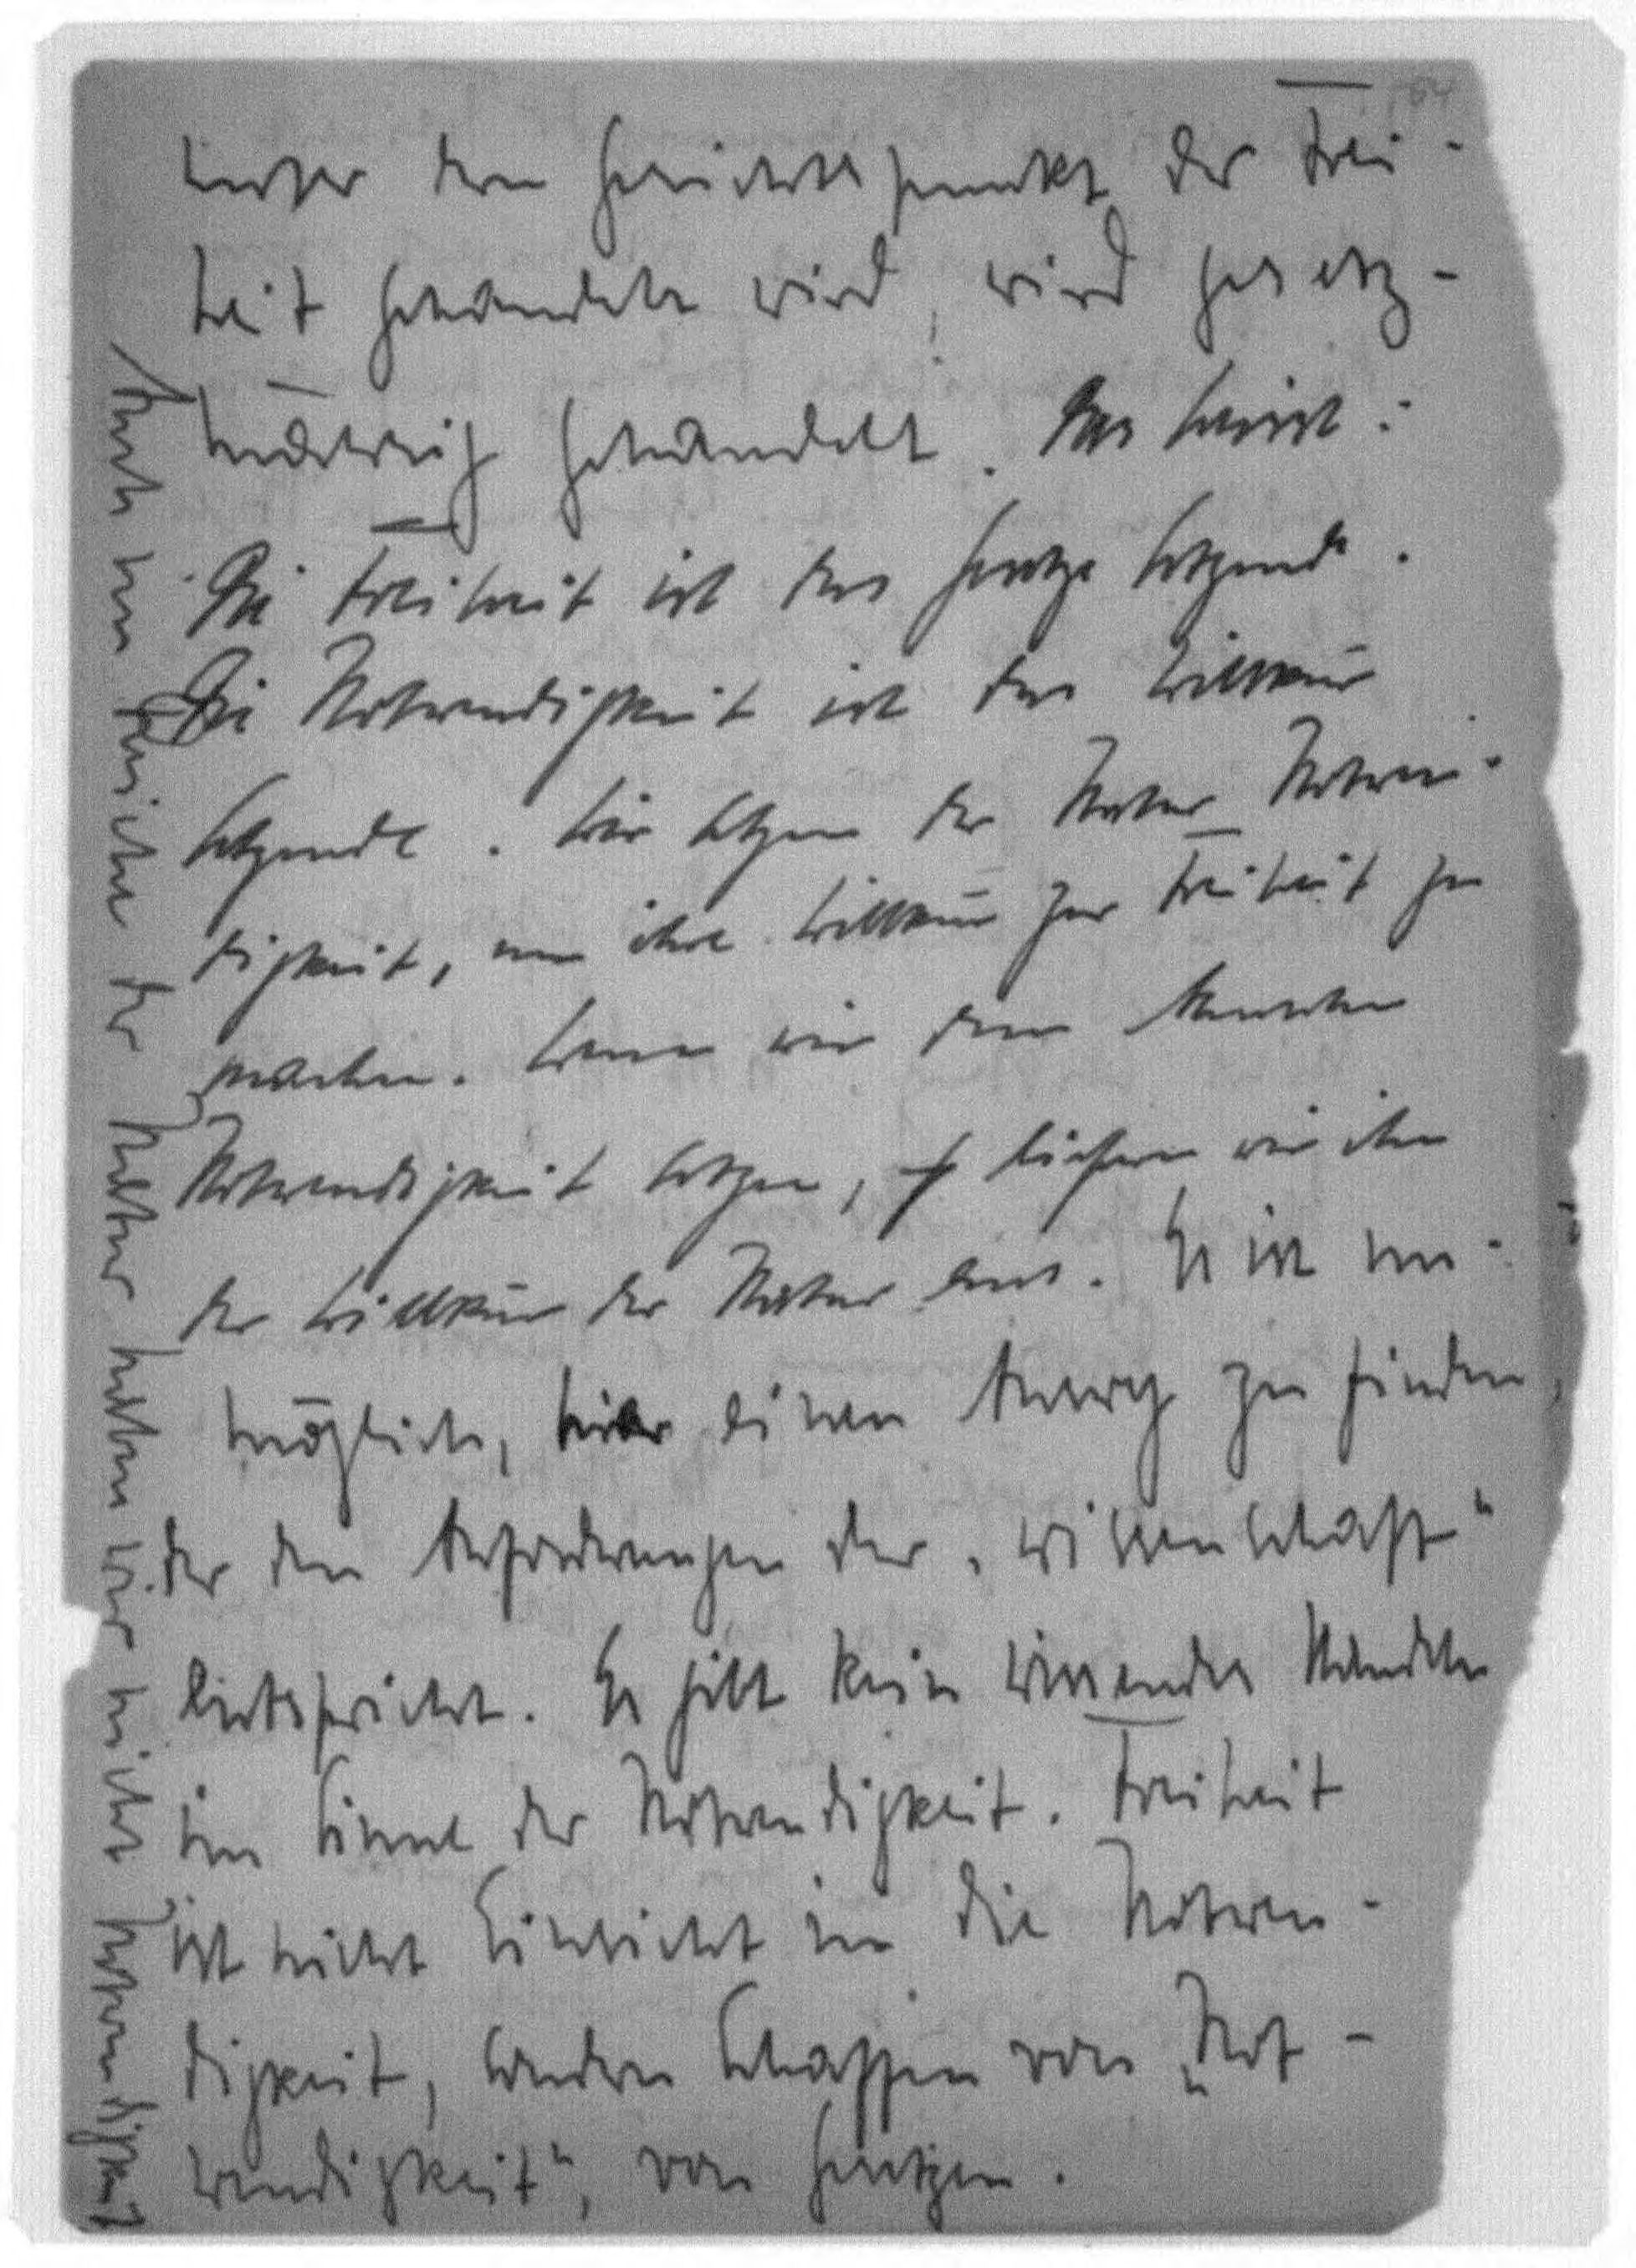 unter dem Gesichtspunkt der Frei-
heit gehandelt wird, wird gesetz-
mässig gehandelt. Das heisst:
Die Freiheit ist das Gesetze setzende.
Die Notwendigkeit ist das Willkür
setzende. Wir setzen der Natur Notwen-
digkeit, um ihre Willkür zur Freiheit zu
machen. Wenn wir dem Menschen
Notwendigkeit setzen, liefern wir ihn
der Willkür der Natur aus. Es ist un-
möglich, hier einen Ausweg zu finden,
der den Anforderungen der „Wissenschaft“
entspricht. Es gibt kein wissendes Handeln
im Sinne der Notwendigkeit. Freiheit
ist nicht Einsicht in die Notwen-
digkeit, sondern Schaffen von „Not-
wendigkeit“, von Gesetzen.
Auch im Bereiche der Natur haben wir nicht Notwendigkeit